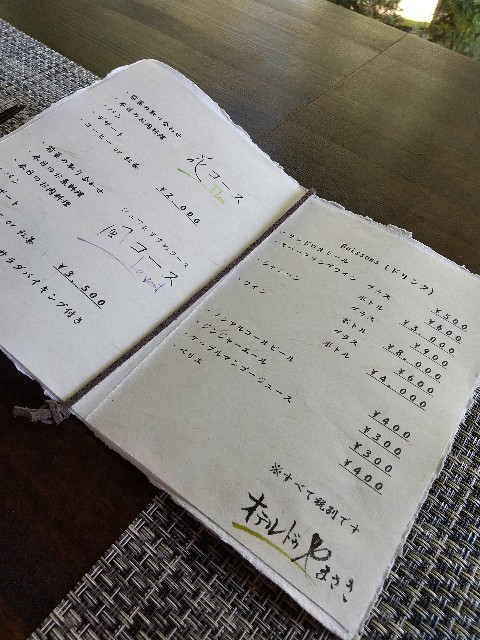 ・前菜の取り合わせ
・本日のお肉料理
・パン
・デザート
・コーヒー/紅茶
コース
¥2,000
・前菜の取り合わせ
・本日のお魚料理
・本日のお肉料理
・パン
シェフ
コース
¥3,500
サラダバイキング付き
Boissons (ドリンク)
¥500
・スパークリングワイン グラス ¥600
ボトル ¥3,000
・シャンパン グラス ¥900
ボトル ¥8,000
・ワイン グラス ¥600
ボトル ¥4,000
・ノンアルコールビール ¥400
・ジンジャーエール ¥300
・アップルマンゴージュース ¥300
・ペリエ ¥400
※すべて税別です
オテルドラ
まさき